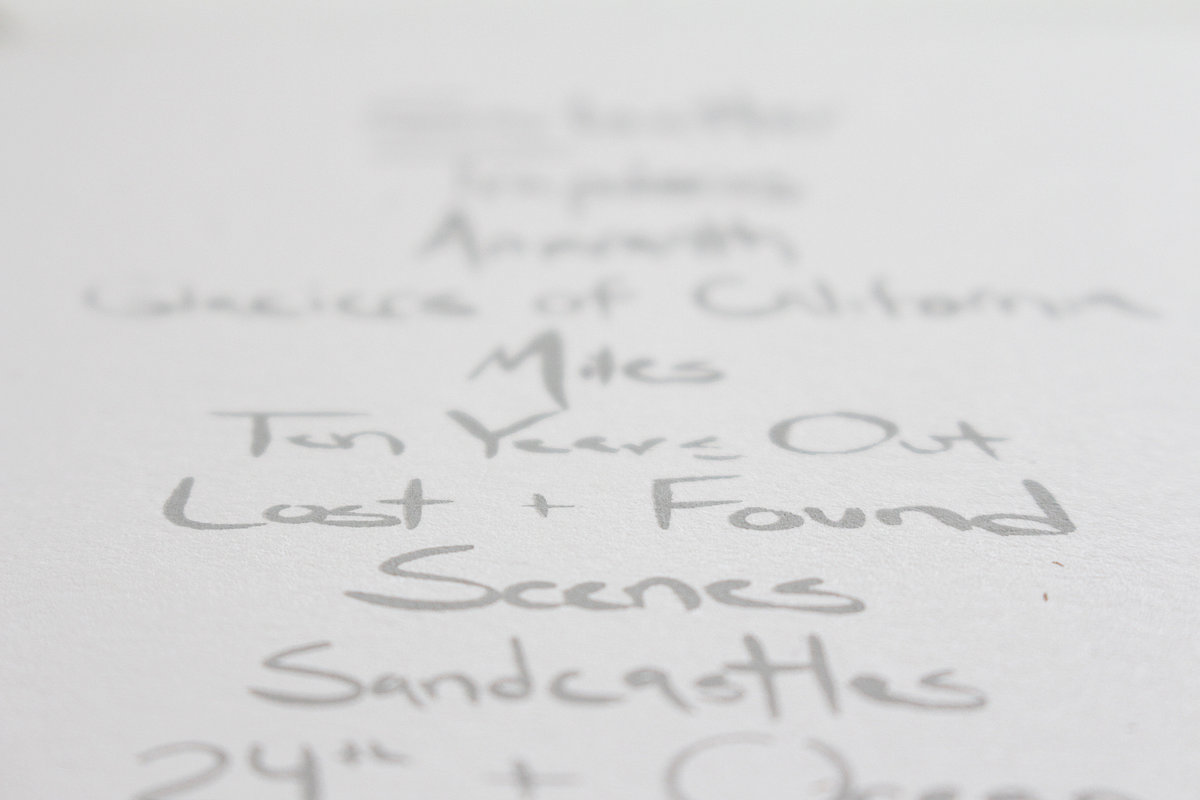 Amaranth
Glaciers of California
Mites
Ten Years Out
Lost + Found
Scenes
Sandcastles
24th + Ocean